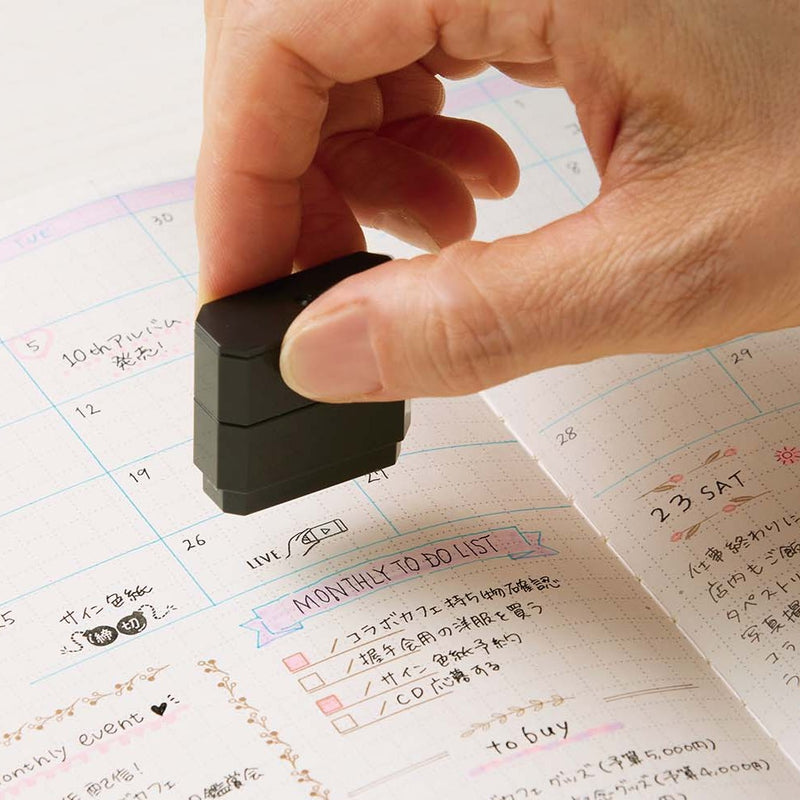 TUE
30
1
8
5
10thアルバム
発売!
12
19
26
27
LIVE
25
サイン色紙
締切
MONTHLY TO DO LIST
/コラボカフェ持ち物確認
/握手会用の洋服を買う
/サイン色紙予約
/CD応募する
monthly event
配信!
カフェ
鑑賞会
to buy
カフェグッズ(予算5,000円)
グッズ(予算4,000円)
28
29
23 SAT
仕事終わりに
店内もご飯
タペストリ
写真撮
コラ